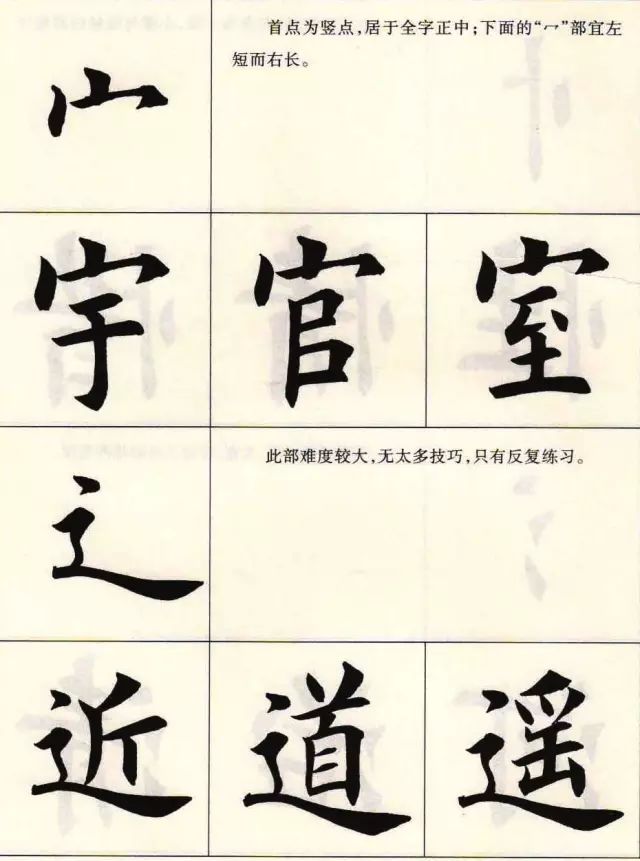 首点为竖点，居于全字正中；下面的“冖”部宜左
短而右长。
宀
宇 官 室
此部难度较大，无太多技巧，只有反复练习。
辶
近 道 遥